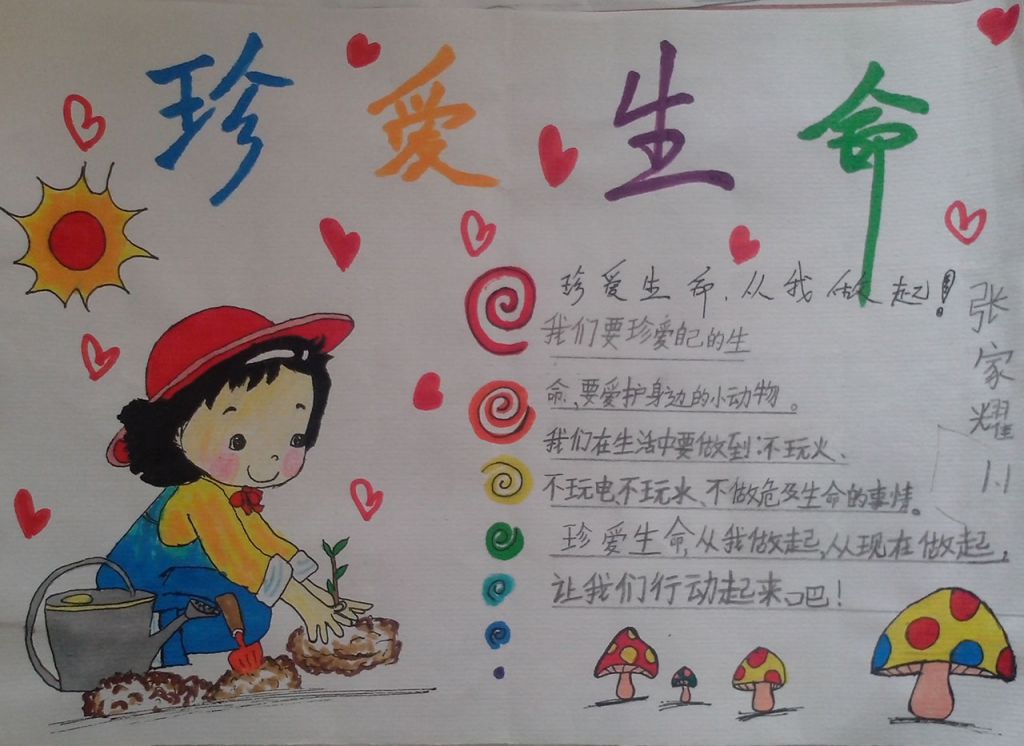 珍爱生命
珍爱生命,从我做起!
我们要珍爱自己的生
命,要爱护身边的小动物。
我们在生活中要做到:不玩火、
不玩电不玩水、不做危及生命的事情。
珍爱生命,从我做起,从现在做起,
让我们行动起来吧!
张家耀 1.1